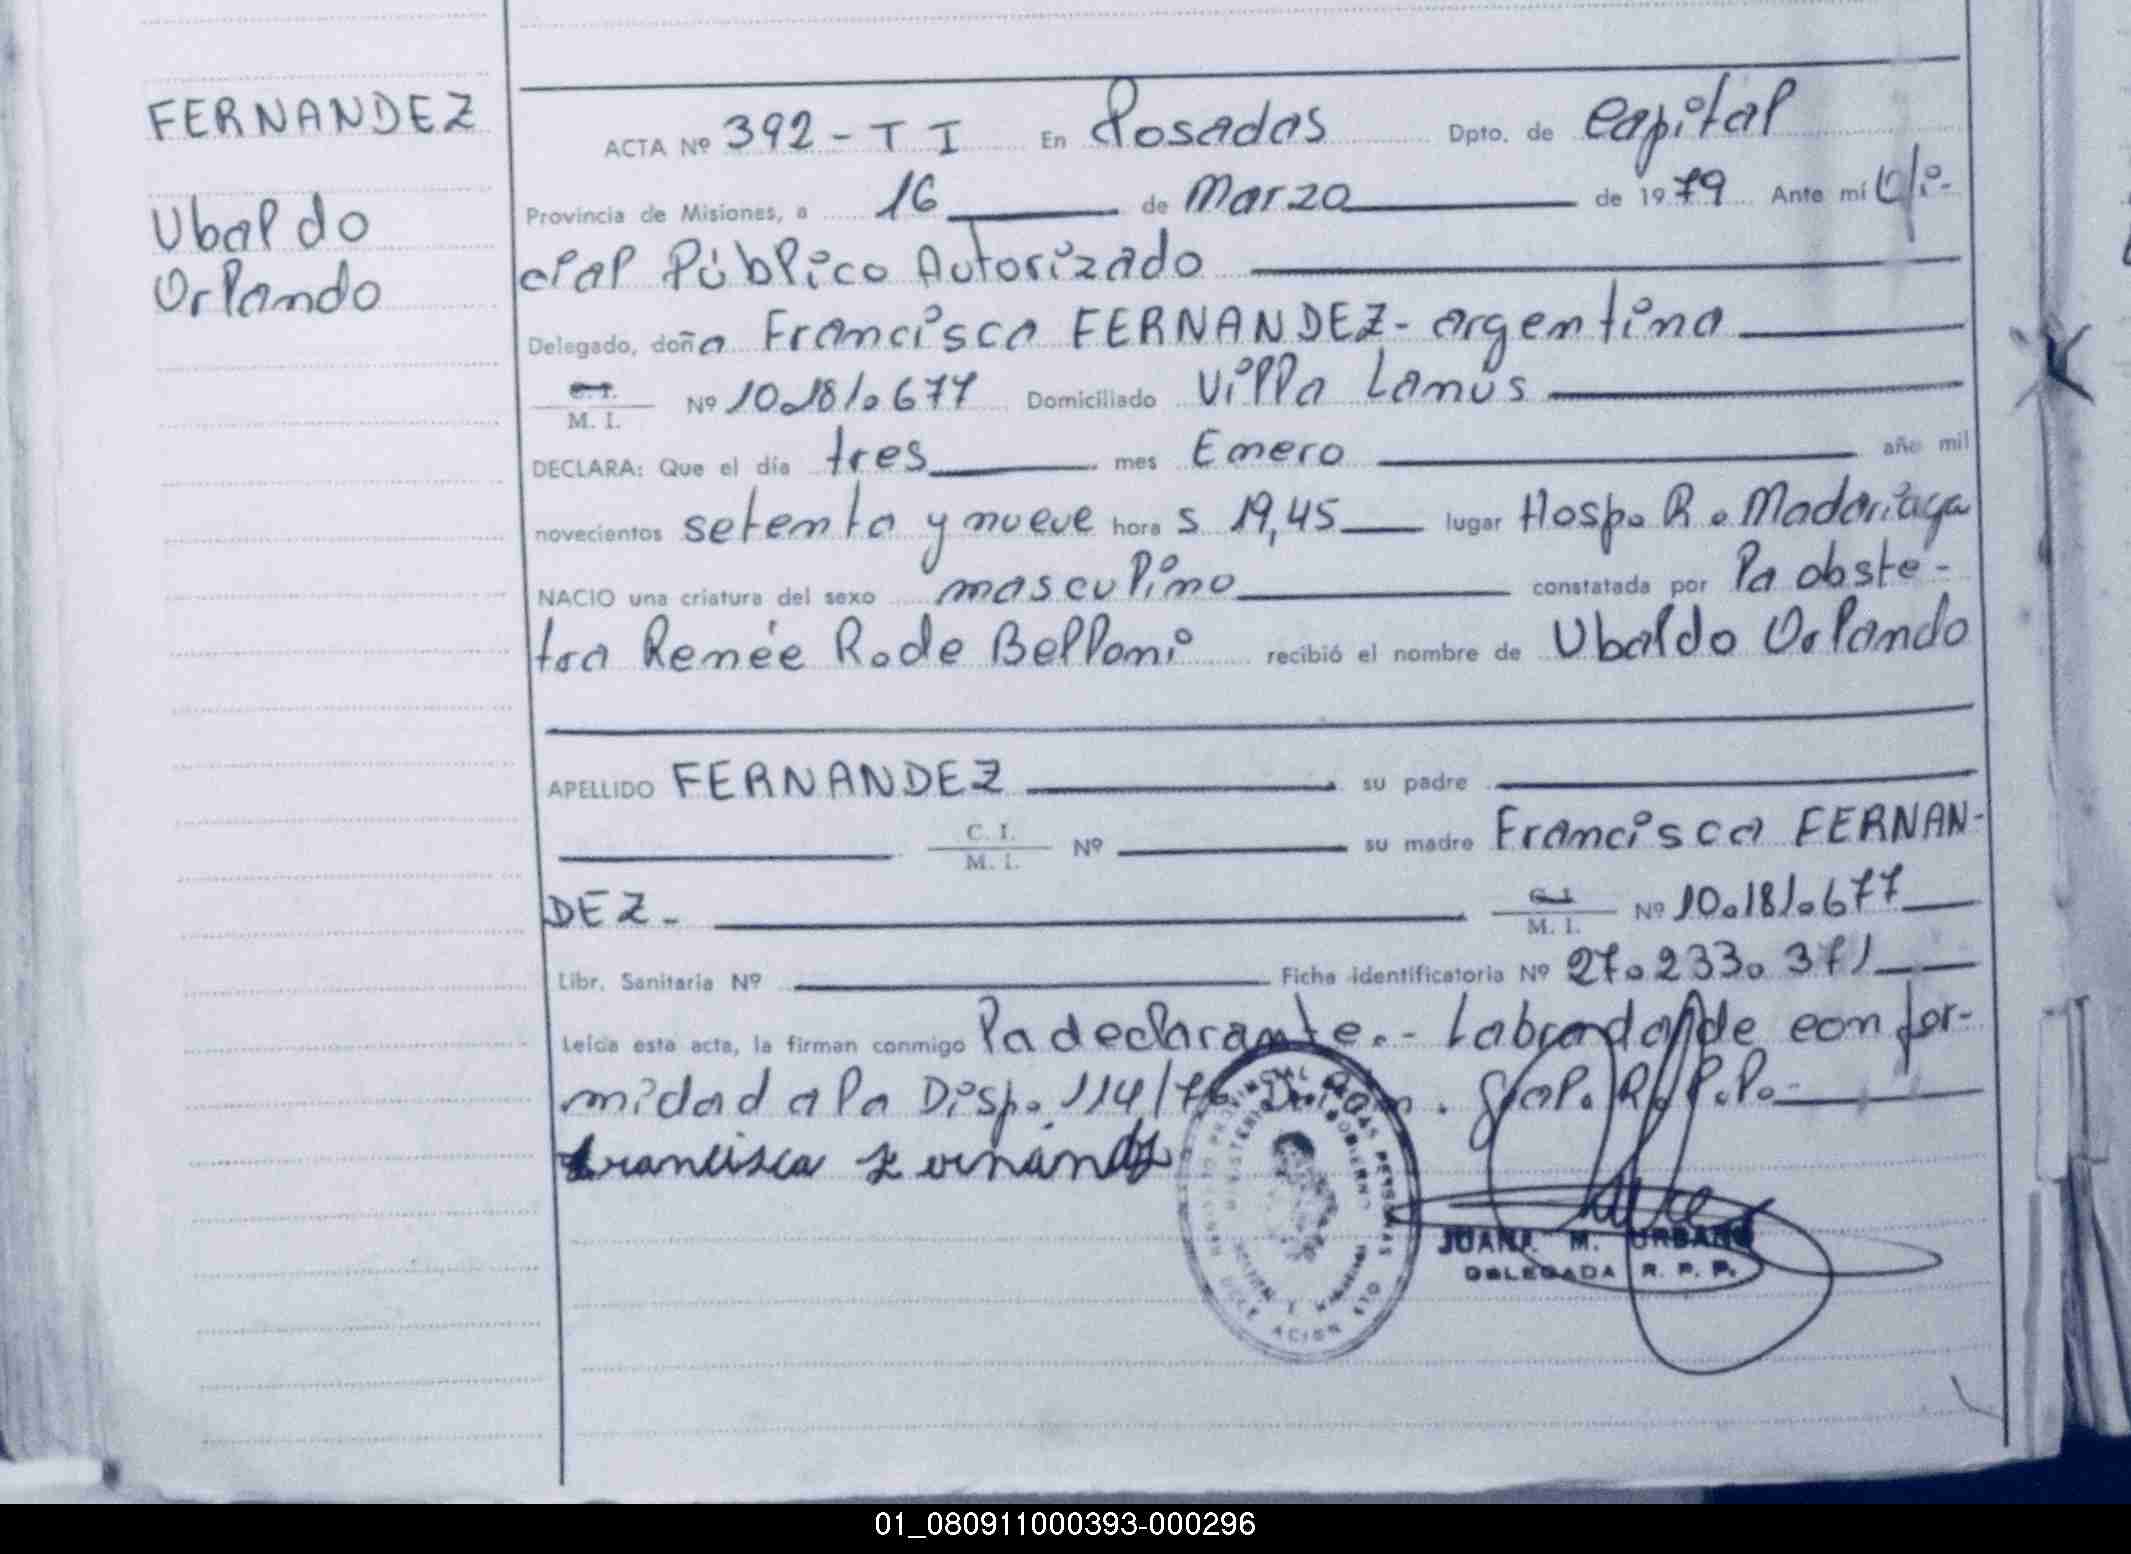 FERNANDEZ
Ubaldo
Orlando
ACTA Nº 392 - T I En Posadas Dpto. de Capital
Provincia de Misiones, a 16 de Marzo de 1979 Ante mí Ofi-
cial Público Autorizado
Delegado, doña Francisca FERNANDEZ - argentina
C. I.
M. I. Nº 10.181.677 Domiciliado Villa Lanús
DECLARA: Que el día tres mes Enero año mil
novecientos setenta y nueve hora s 19,45 lugar Hosp. R. Madariaga
NACIO una criatura del sexo masculino constatada por la obste-
tra Renée R. de Belloni recibió el nombre de Ubaldo Orlando
APELLIDO FERNANDEZ su padre
C. I.
M. I. Nº su madre Francisca FERNAN-
DEZ.-
C. I.
M. I. Nº 10.181.677
Libr. Sanitaria Nº Ficha identificatoria Nº 27.233.371
Leída esta acta, la firman conmigo la declarante.- Labrada de confor-
midad a la Disp. 114/76 Gral. R. P. P.-
Francisca Fernández
JUANA M. URBANO
DELEGADA R. P. P.
01_080911000393-000296